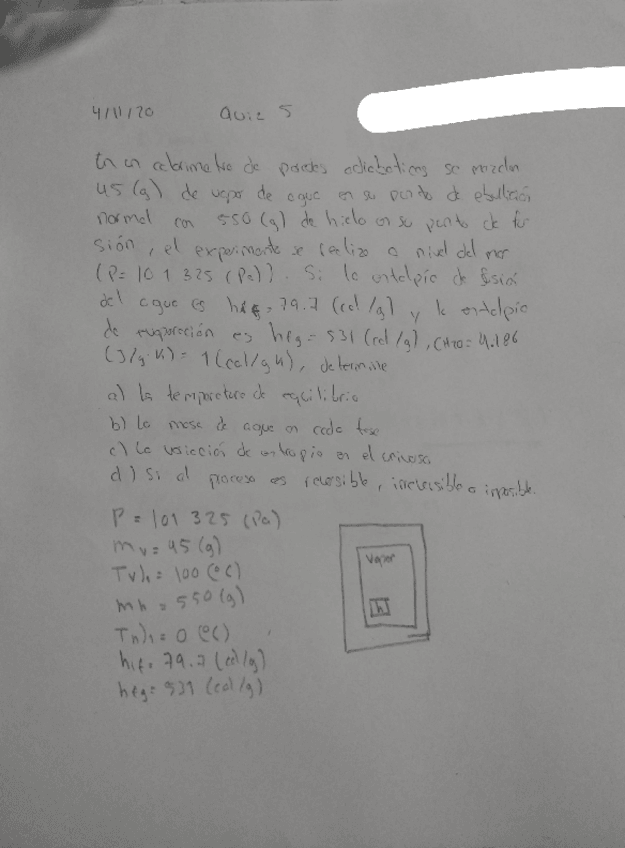 4/11/20 Quiz 5
En un calorimetro de paredes adiabaticas se mezclan
45 (g) de vapor de agua en su punto de ebullición
normal con 550 (g) de hielo en su punto de fu
sión, el experimento se realizo a nivel del mar
(P= 101 325 (Pa)). Si la entalpía de fusión
del agua es hif= 79.7 (cal/g) y la entalpia
de evaporación es hfg= 531 (cal/g), CH2O= 4.186
(J/g·K)= 1(cal/g K), determine
a) la temperatura de equilibrio
b) La masa de agua en cada fase
c) La variación de entropia en el universo
d) Si el proceso es reversible, irreversible o imposible.
P = 101 325 (Pa)
mv= 45 (g)
Tv)1= 100 (°C)
mh = 550 (g)
Th)1= 0 (°C)
hif= 79.7 (cal/g)
hfg= 531 (cal/g)
Vapor
h